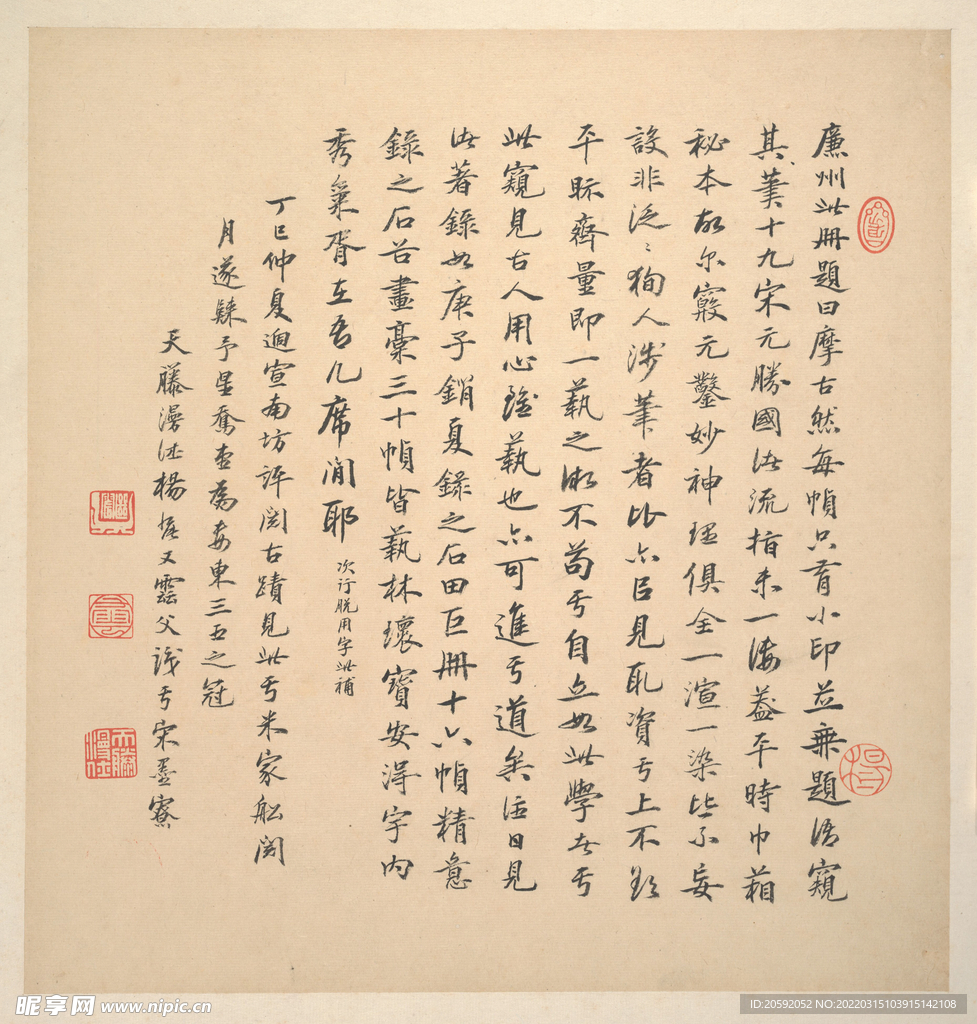 廉州此冊題曰摩古然每幀只有小印並無題語窺
其筆十九宋元勝國法流指未一海蓋平時巾箱
秘本故尔窮元鑿妙神理俱全一渲一染皆不妄
設非泛泛徇人涉筆者比亦臣見取資于上不
平眎齊量即一藝之微不苟于自立如此學者于
此窺見古人用心雖藝也亦可進于道矣往日見
法著錄如庚子銷夏錄之石田巨冊十六幀精意
錄之石谷畫稾三十幀皆藝林瓌寶安得宇內
秀氣胥在吾几席間耶 次行脫用字此補
丁巳仲夏迴宣南坊評閱古蹟見此于米家船閱
月遂歸予星奪壺為婁東三五之冠
天藤漫住楊 又雲父識于宋墨寮
昵享网 www.nipic.cn
ID:20592052 NO:20220315103915142108